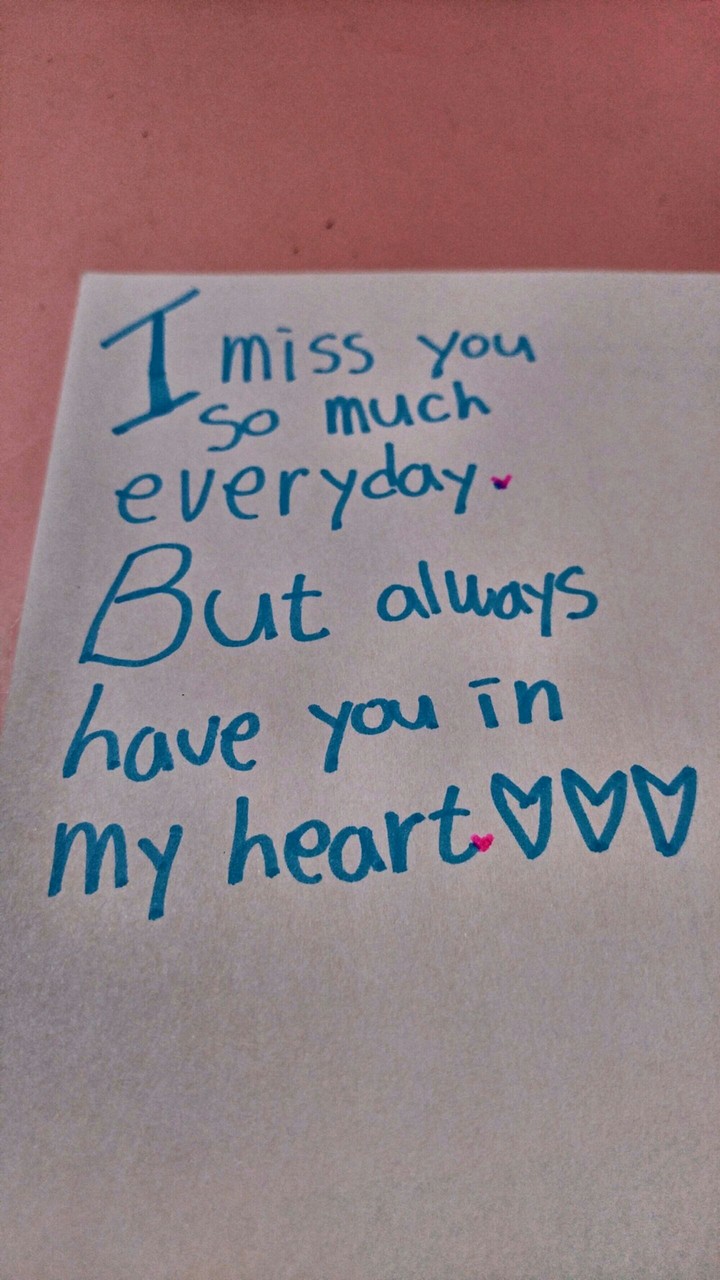 I miss you
so much
everyday.
But always
have you in
my heart.♡♡♡